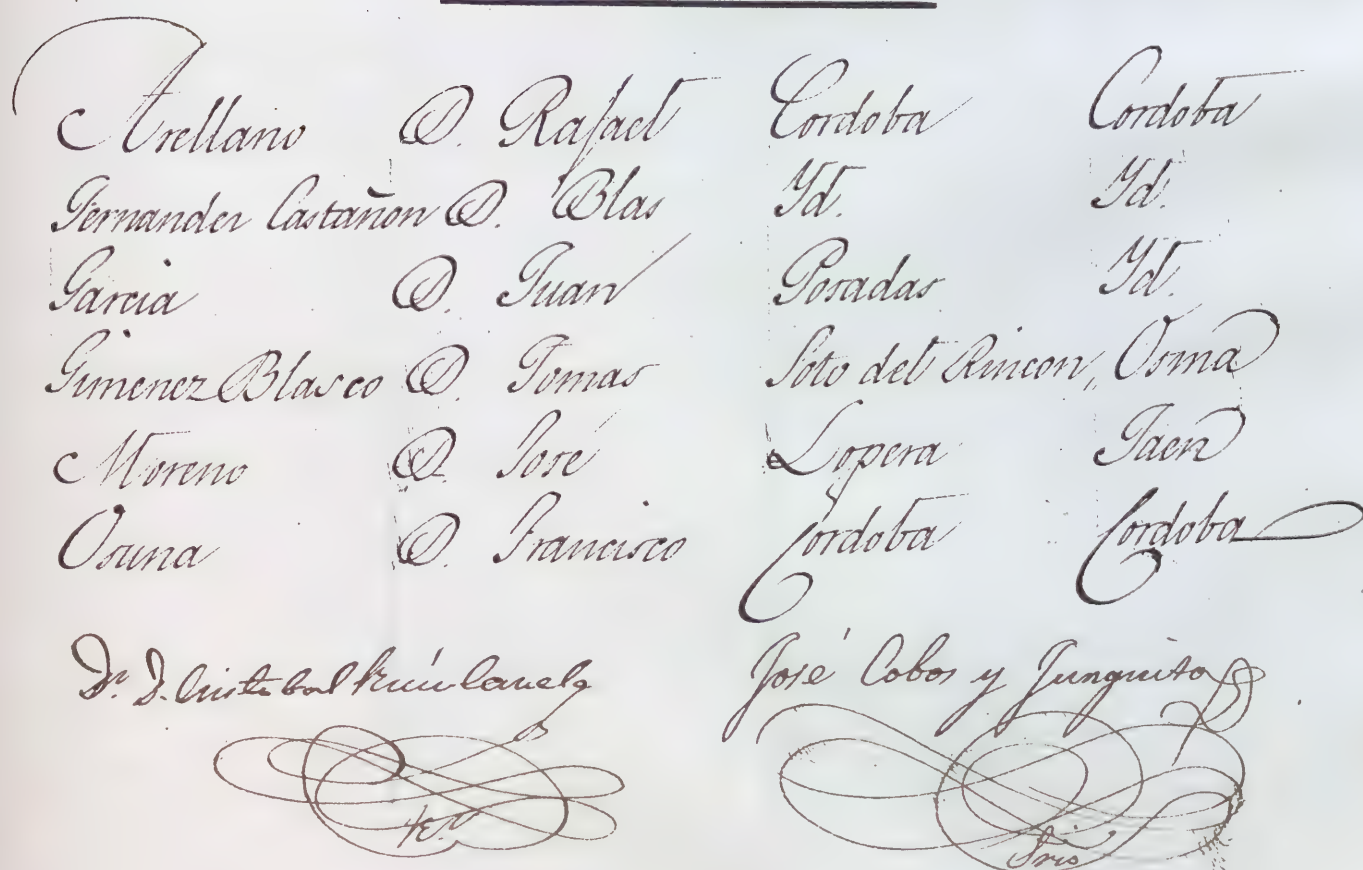 Arellano D. Rafael Cordoba Cordoba
Fernandez Castañon D. Blas Yd. Yd.
Garcia D. Juan Posadas Yd.
Gimenez Blasco D. Tomas Soto del Rincon, Osma
Moreno D. José Lopera Jaen
Osuna D. Francisco Cordoba Cordoba
Dr. D. Cristobal José Cobos y Junguito
Srio